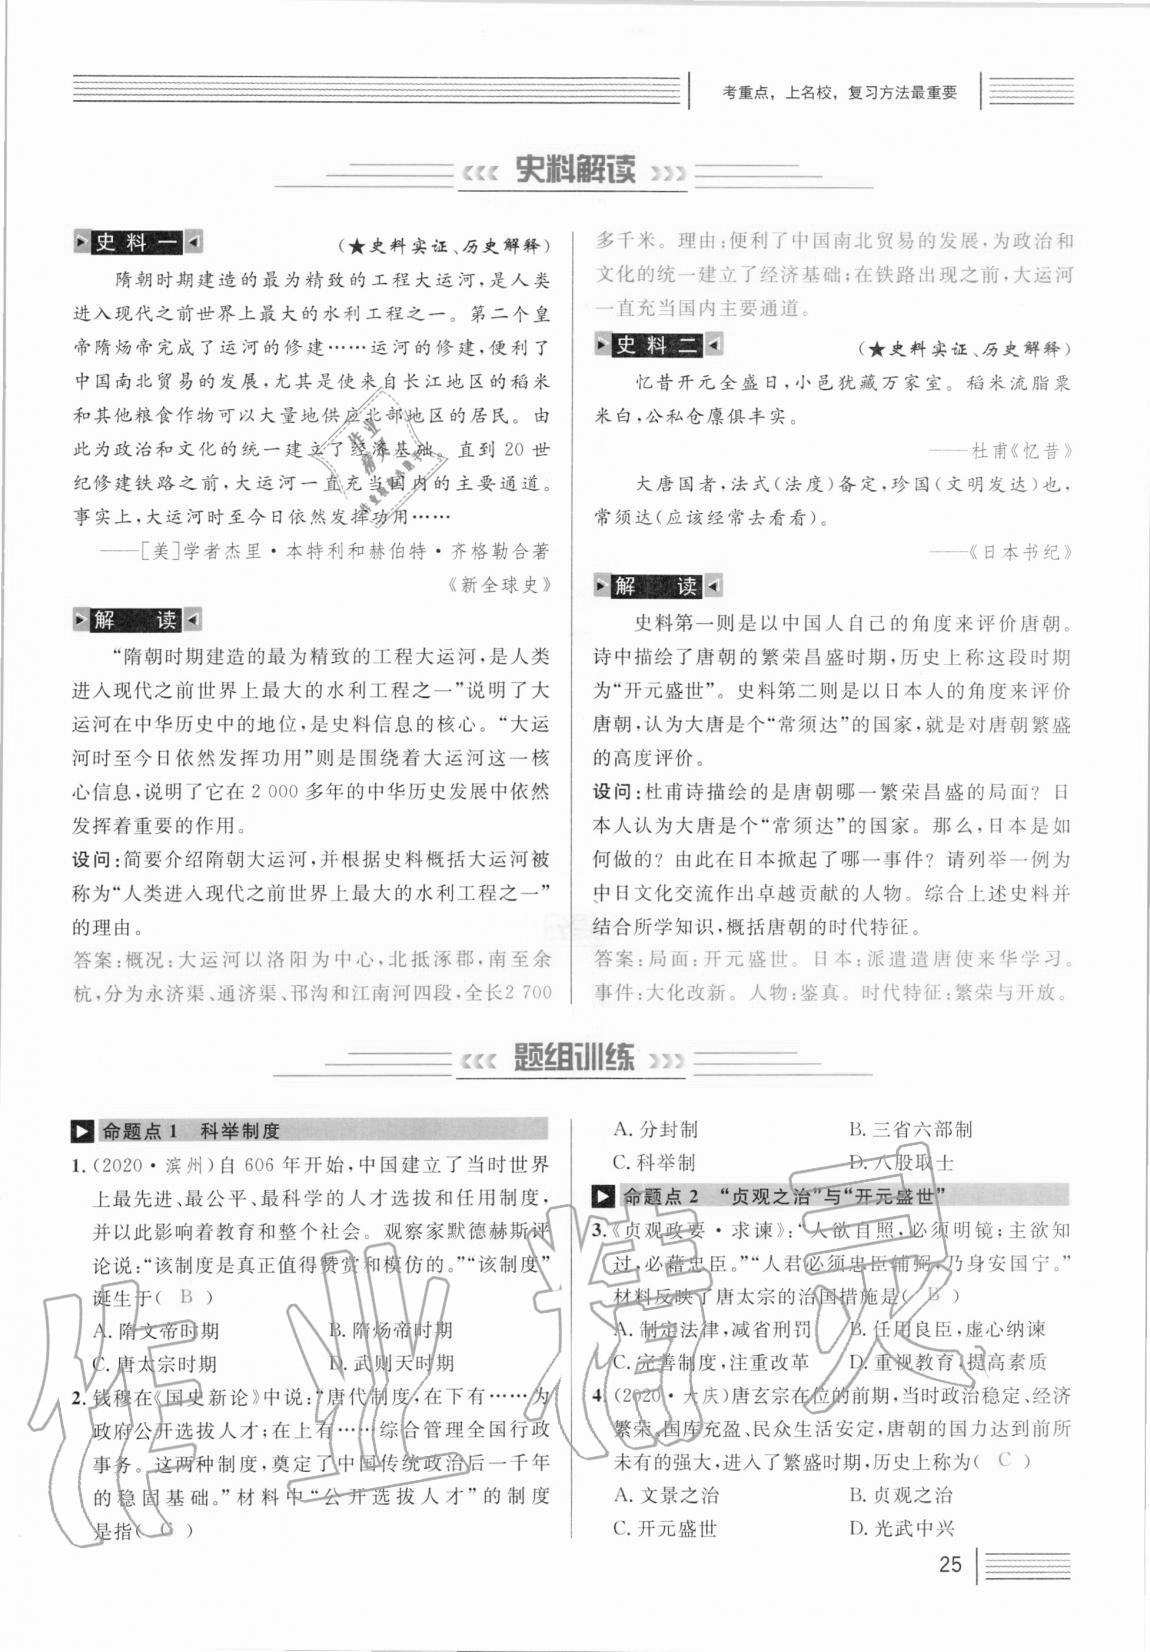 考重点，上名校，复习方法最重要
史料解读
史料一
(★史料实证、历史解释)
隋朝时期建造的最为精致的工程大运河，是人类
进入现代之前世界上最大的水利工程之一。第二个皇
帝隋炀帝完成了运河的修建……运河的修建，便利了
中国南北贸易的发展，尤其是使来自长江地区的稻米
和其他粮食作物可以大量地供应北部地区的居民。由
此为政治和文化的统一建立了经济基础。直到 20 世
纪修建铁路之前，大运河一直充当国内的主要通道。
事实上，大运河时至今日依然发挥功用……
——[美]学者杰里·本特利和赫伯特·齐格勒合著
《新全球史》
解 读
“隋朝时期建造的最为精致的工程大运河，是人类
进入现代之前世界上最大的水利工程之一”说明了大
运河在中华历史中的地位，是史料信息的核心。“大运
河时至今日依然发挥功用”则是围绕着大运河这一核
心信息，说明了它在 2 000 多年的中华历史发展中依然
发挥着重要的作用。
设问：简要介绍隋朝大运河，并根据史料概括大运河被
称为“人类进入现代之前世界上最大的水利工程之一”
的理由。
答案：概况：大运河以洛阳为中心，北抵涿郡，南至余
杭，分为永济渠、通济渠、邗沟和江南河四段，全长2 700
多千米。理由：便利了中国南北贸易的发展，为政治和
文化的统一建立了经济基础；在铁路出现之前，大运河
一直充当国内主要通道。
史料二
(★史料实证、历史解释)
忆昔开元全盛日，小邑犹藏万家室。稻米流脂粟
米白，公私仓廪俱丰实。
——杜甫《忆昔》
大唐国者，法式(法度)备定，珍国(文明发达)也，
常须达(应该经常去看看)。
——《日本书纪》
解 读
史料第一则是以中国人自己的角度来评价唐朝。
诗中描绘了唐朝的繁荣昌盛时期，历史上称这段时期
为“开元盛世”。史料第二则是以日本人的角度来评价
唐朝，认为大唐是个“常须达”的国家，就是对唐朝繁盛
的高度评价。
设问：杜甫诗描绘的是唐朝哪一繁荣昌盛的局面？日
本人认为大唐是个“常须达”的国家。那么，日本是如
何做的？由此在日本掀起了哪一事件？请列举一例为
中日文化交流作出卓越贡献的人物。综合上述史料并
结合所学知识，概括唐朝的时代特征。
答案：局面：开元盛世。日本：派遣遣唐使来华学习。
事件：大化改新。人物：鉴真。时代特征：繁荣与开放。
题组训练
命题点 1 科举制度
1. (2020·滨州)自 606 年开始，中国建立了当时世界
上最先进、最公平、最科学的人才选拔和任用制度，
并以此影响着教育和整个社会。观察家默德赫斯评
论说：“该制度是真正值得赞赏和模仿的。”“该制度”
诞生于( B )
A. 隋文帝时期 B. 隋炀帝时期
C. 唐太宗时期 D. 武则天时期
2. 钱穆在《国史新论》中说：“唐代制度，在下有……为
政府公开选拔人才；在上有……综合管理全国行政
事务。这两种制度，奠定了中国传统政治后一千年
的稳固基础。”材料中“公开选拔人才”的制度
是指( C )
A. 分封制 B. 三省六部制
C. 科举制 D. 八股取士
命题点 2 “贞观之治”与“开元盛世”
3. 《贞观政要·求谏》：“人欲自照，必须明镜；主欲知
过，必藉忠臣。”“人君必须忠臣辅弼，乃身安国宁。”
材料反映了唐太宗的治国措施是( B )
A. 制定法律，减省刑罚 B. 任用良臣，虚心纳谏
C. 完善制度，注重改革 D. 重视教育，提高素质
4. (2020·大庆)唐玄宗在位的前期，当时政治稳定、经济
繁荣、国库充盈、民众生活安定，唐朝的国力达到前所
未有的强大，进入了繁盛时期，历史上称为( C )
A. 文景之治 B. 贞观之治
C. 开元盛世 D. 光武中兴
25
作业精灵